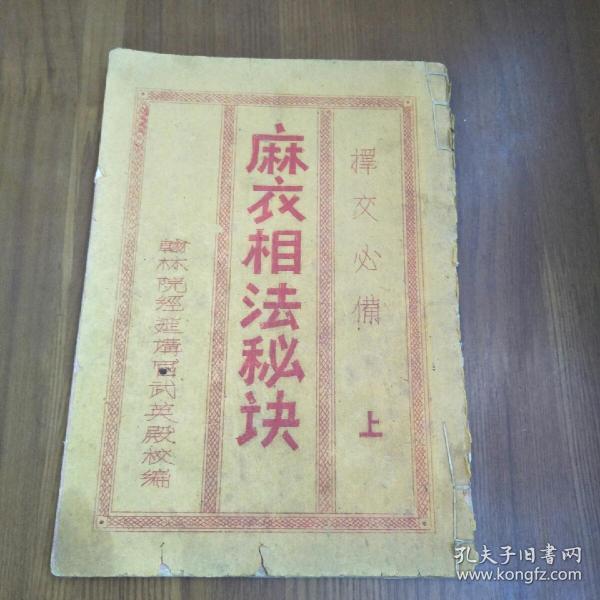 擇交必備
上
麻衣相法秘诀
翰林院經筵講官武英殿校編
孔夫子旧书网
www.kongfz.com